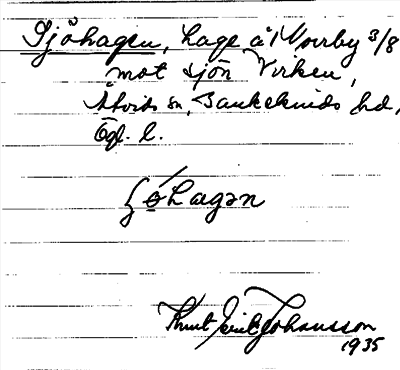 Sjöhagen, hage å Norrby 3/8
mot sjön Yrken,
Åtvids sn, Bankekinds hd,
Ögl. l.
ʃöhagən
Knut Erik Johansson
1935